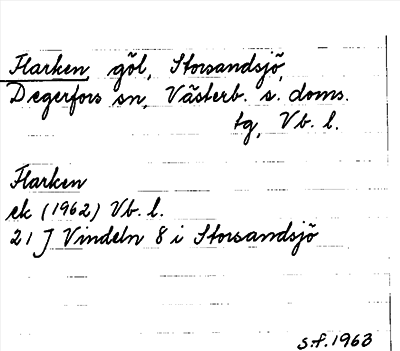 Flarken göl, Storsandsjö,
Degerfors sn, Västerb. s. doms.
tg, Vb. l.
Flarken
ek (1962) Vb. l.
21 J Vindeln 8 i Storsandsjö
s.f. 1963